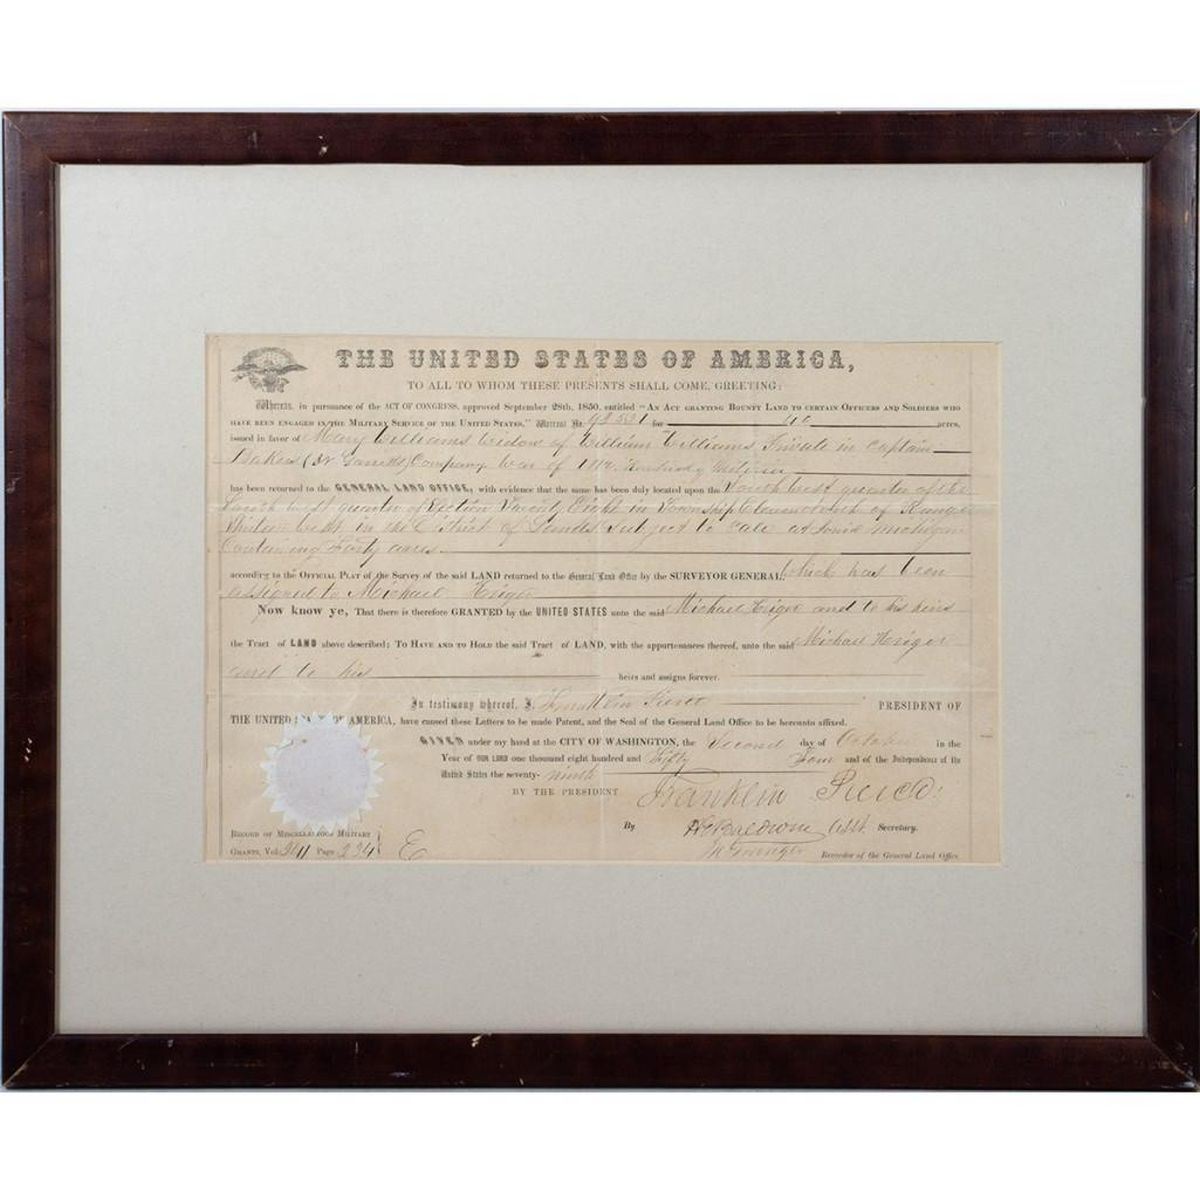 THE UNITED STATES OF AMERICA,
TO ALL TO WHOM THESE PRESENTS SHALL COME, GREETING:
Whereas, in pursuance of the ACT OF CONGRESS, approved September 28th, 1850, entitled "AN ACT GRANTING BOUNTY LAND TO CERTAIN OFFICERS AND SOLDIERS WHO
HAVE BEEN ENGAGED IN THE MILITARY SERVICE OF THE UNITED STATES." Warrant No. for 40 acres,
issued in favor of Mary Williams widow of William Williams Private in Captain
Company War of 1812
has been returned to the GENERAL LAND OFFICE, with evidence that the same has been duly located upon the South west quarter of the
South west quarter of Section Twenty Eight in Township Eleven North of Range
Thirteen West in the District of Lands subject to sale at Ionia Michigan
Containing Forty acres
according to the OFFICIAL PLAT of the Survey of the said LAND returned to the General Land Office by the SURVEYOR GENERAL: which has been
assigned to Michael
Now know ye, That there is therefore GRANTED by the UNITED STATES unto the said Michael and to his heirs
the Tract of LAND above described; TO HAVE AND TO HOLD the said Tract of LAND, with the appurtenances thereof, unto the said Michael
and to his heirs and assigns forever.
In testimony whereof, I, Franklin Pierce PRESIDENT OF
THE UNITED STATES OF AMERICA, have caused these Letters to be made Patent, and the Seal of the General Land Office to be hereunto affixed.
GIVEN under my hand at the CITY OF WASHINGTON, the Second day of October in the
Year of OUR LORD one thousand eight hundred and Fifty Four and of the Independence of the
United States the seventy-ninth
BY THE PRESIDENT Franklin Pierce
By Baldwin Asst. Secretary.
RECORD OF MISCELLANEOUS MILITARY
GRANTS, Vol. Page 234 E Granger Recorder of the General Land Office.